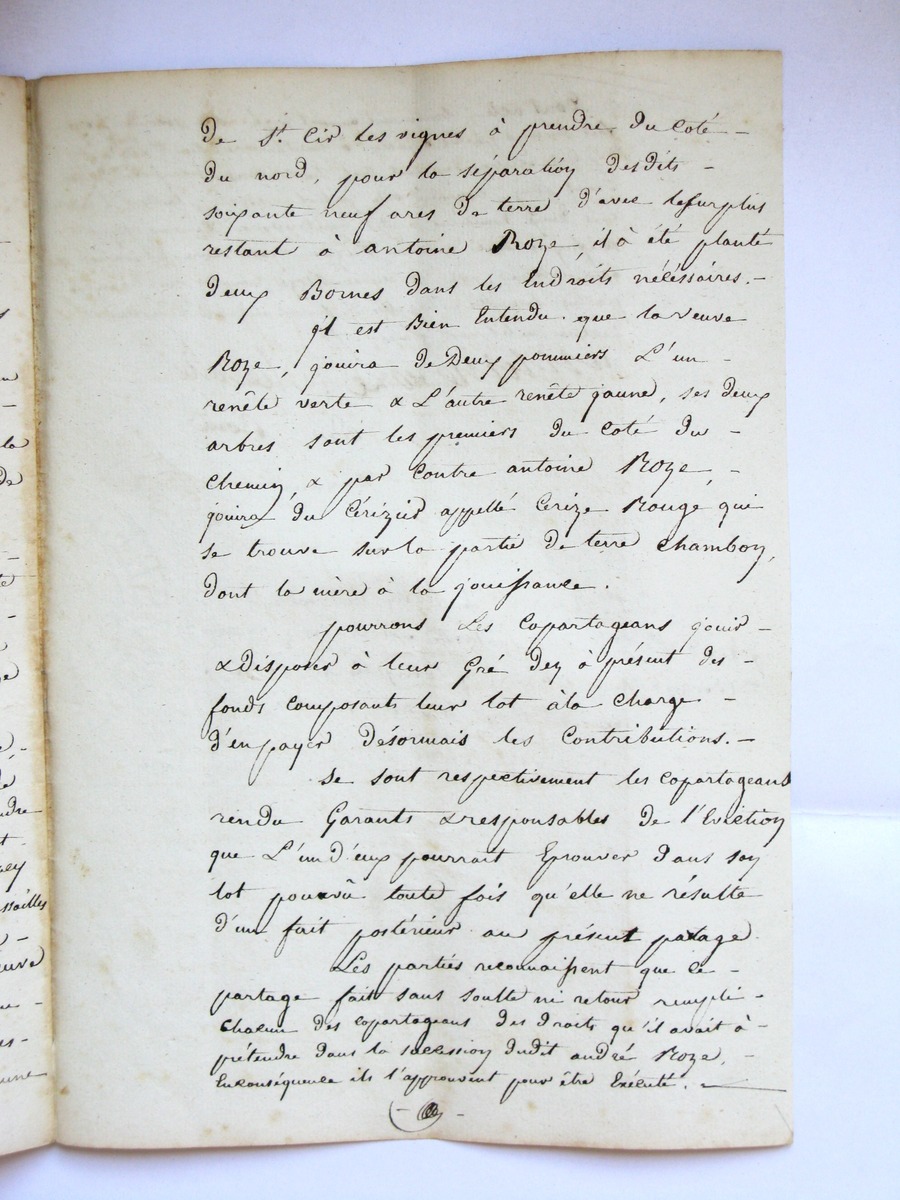 De St. Cir les vignes à prendre du Coté -
du nord, pour la séparation desdits -
soixante neuf ares de terre d'avec lesurplus
restant à antoine Roze, il à été planté
deux Bornes dans les Endroits nécéssaires. -
il est Bien Entendu que la veuve
Roze, jouira de Deux pommiers L'un -
renête verte & L'autre renête jaune, ses deux
arbres sont les premiers du Coté du -
Chemin, & par Contre antoine Roze, -
jouira du Cérizier appellé Cerize Rouge, qui
se trouve sur la partie de terre Chambon,
dont la mère à la jouissance.
pourrons Les Copartageans jouir -
& disposer à leur Gré Dez à présent des -
fonds Composants leur lot àla Charge -
d'en payer Désormais les Contributions. -
se sont respectivement les Copartageans
rendu Garants & responsables de l'Eviction
que L'un d'eux pourrait Eprouver dans son
lot pourvû toute fois qu'elle ne résulte
d'un fait postérieur au présent patage
Les parties reconnaissent que ce -
partage fait sans soulte ni retour rempli -
Chacun des Copartageans des droits qu'il avait à -
prétendre dans la succession dudit andré Roze, -
Enconséquence ils l'approuvent pour être Exécuté.
la
de
té
ge
ndre
ssailles
euve
une